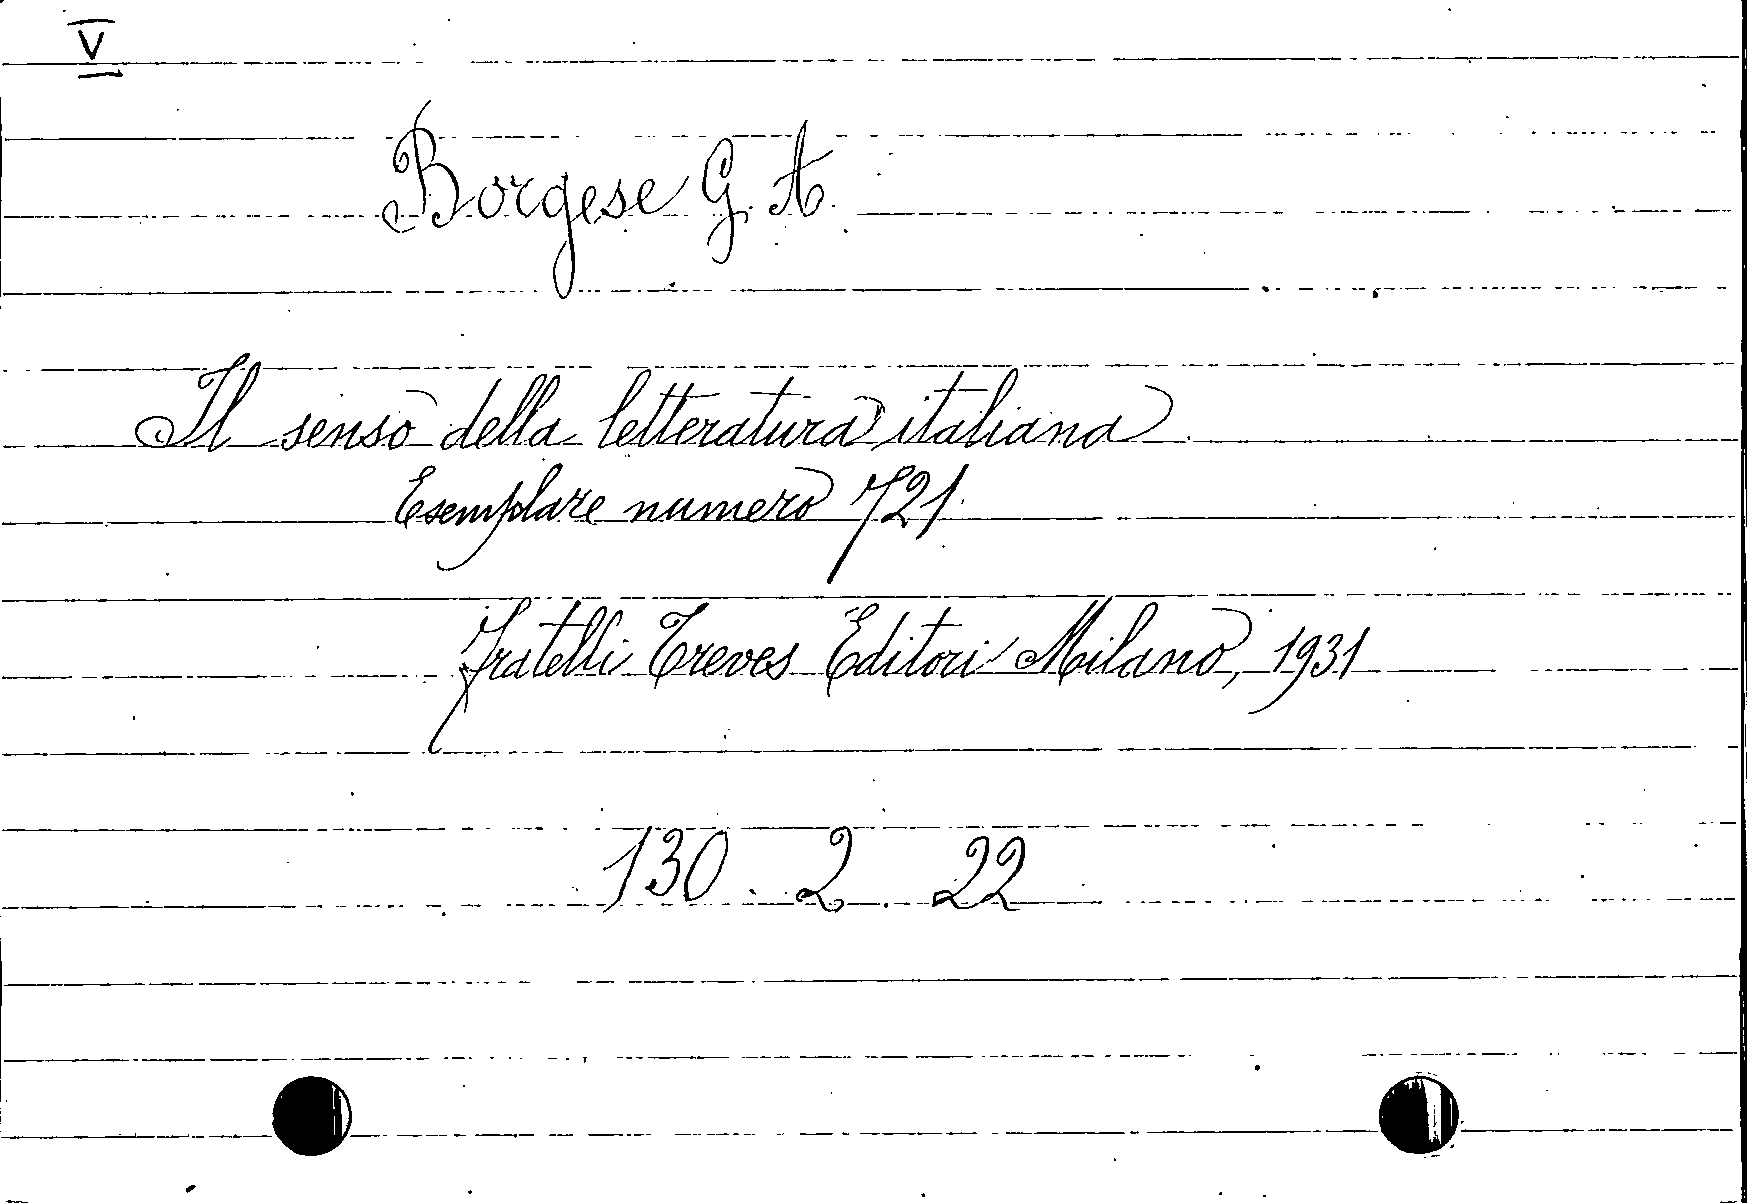 V
Borgese G. A.
Il senso della letteratura italiana
Esemplare numero 721.
Fratelli Treves Editori Milano, 1931
130. 2. 22